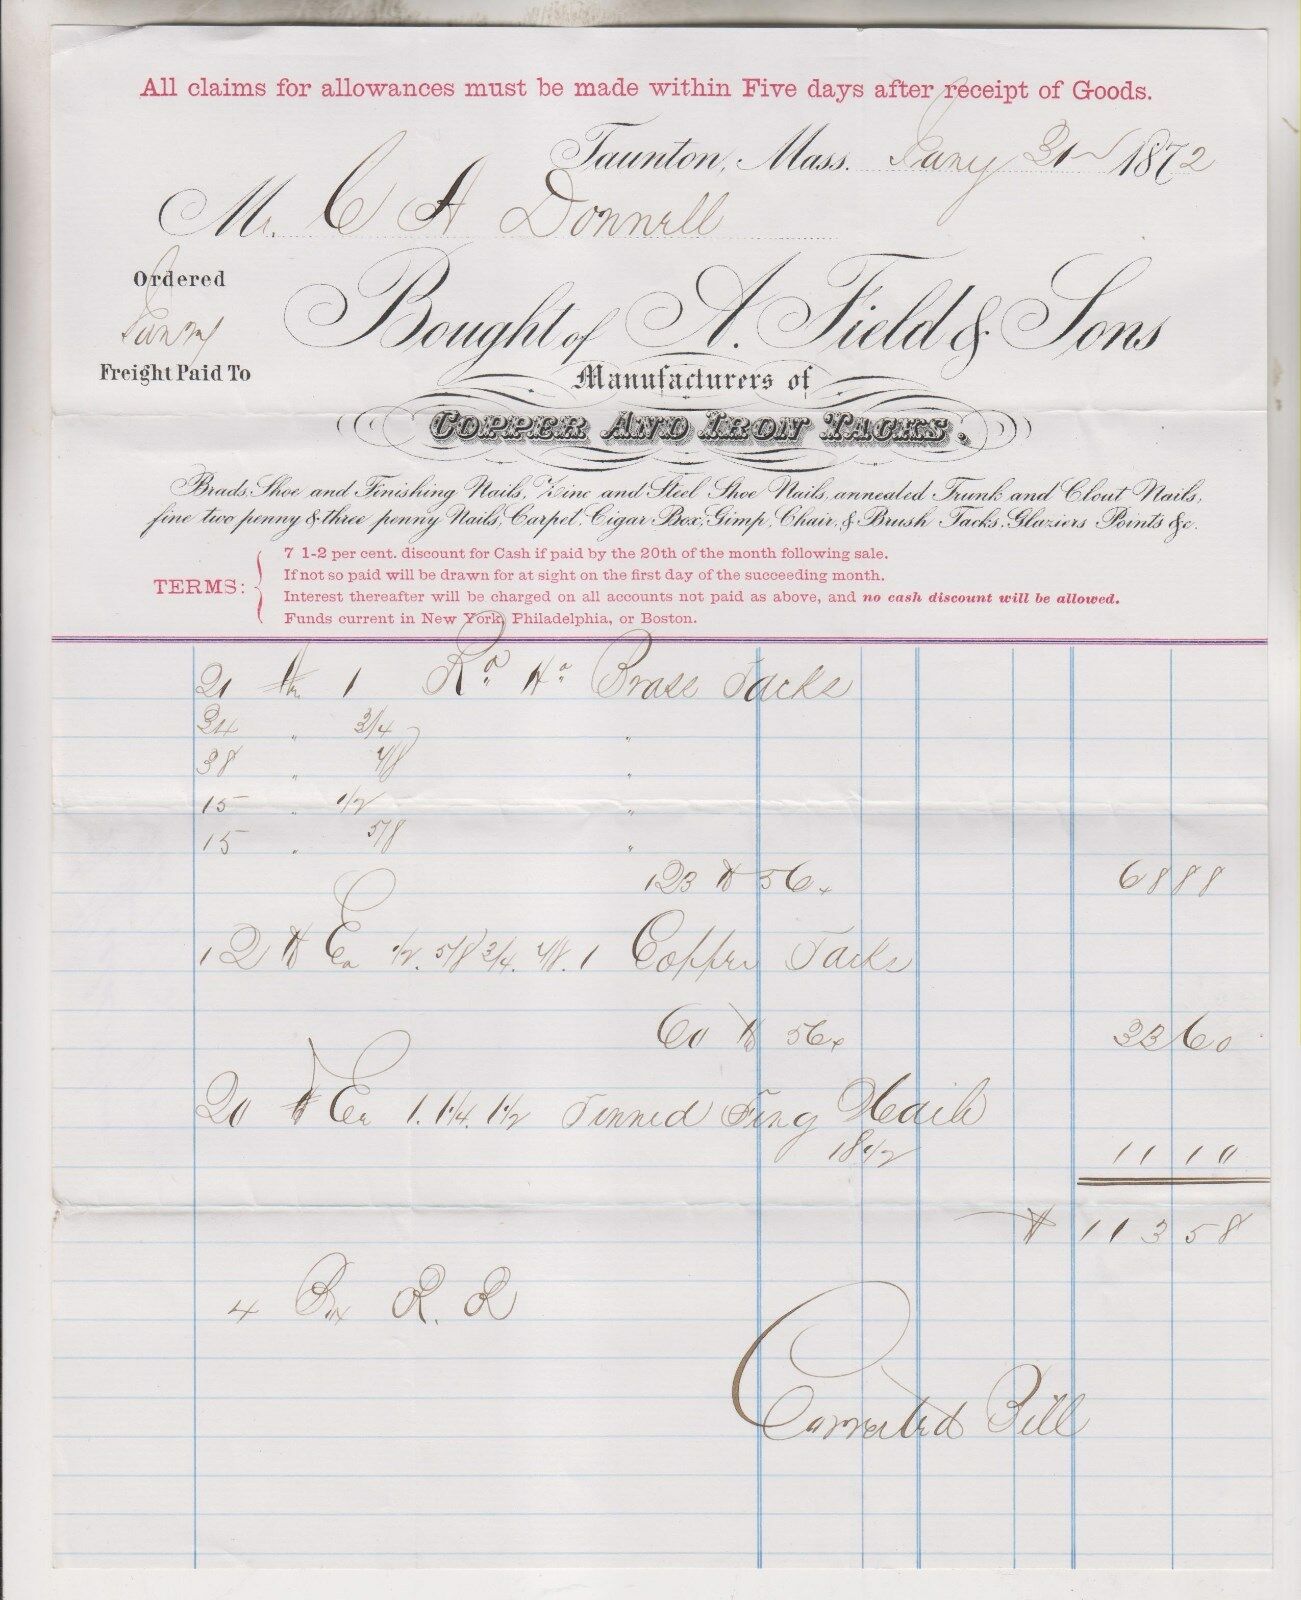 All claims for allowances must be made within Five days after receipt of Goods.
Taunton, Mass. Jany 31 1872
Mr. C A Donnell
Ordered
Bought of A. Field & Sons
Freight Paid To
Manufacturers of
COPPER AND IRON TACKS.
Brads, Shoe and Finishing Nails, Zinc and Steel Shoe Nails, annealed Trunk and Clout Nails,
fine two penny & three penny Nails, Carpet, Cigar Box, Gimp, Chair, & Brush Tacks, Glaziers Points &c.
TERMS:
7 1-2 per cent. discount for Cash if paid by the 20th of the month following sale.
If not so paid will be drawn for at sight on the first day of the succeeding month.
Interest thereafter will be charged on all accounts not paid as above, and no cash discount will be allowed.
Funds current in New York, Philadelphia, or Boston.
21 1 Rd Hd Brass Tacks
34 " 3/4 "
38 " 7/8 "
15 " 1/2 "
15 " 5/8 "
123 # 56 68 88
12 # Ea 1/2. 5/8 3/4. 7/8. 1 Copper Tacks
60 # 56 33 60
20 # Ea 1. 1 1/4. 1 1/2 Tinned Fing Nails
18 1/2 11 10
$ 113 58
4 Bx R. R
Corrected Bill